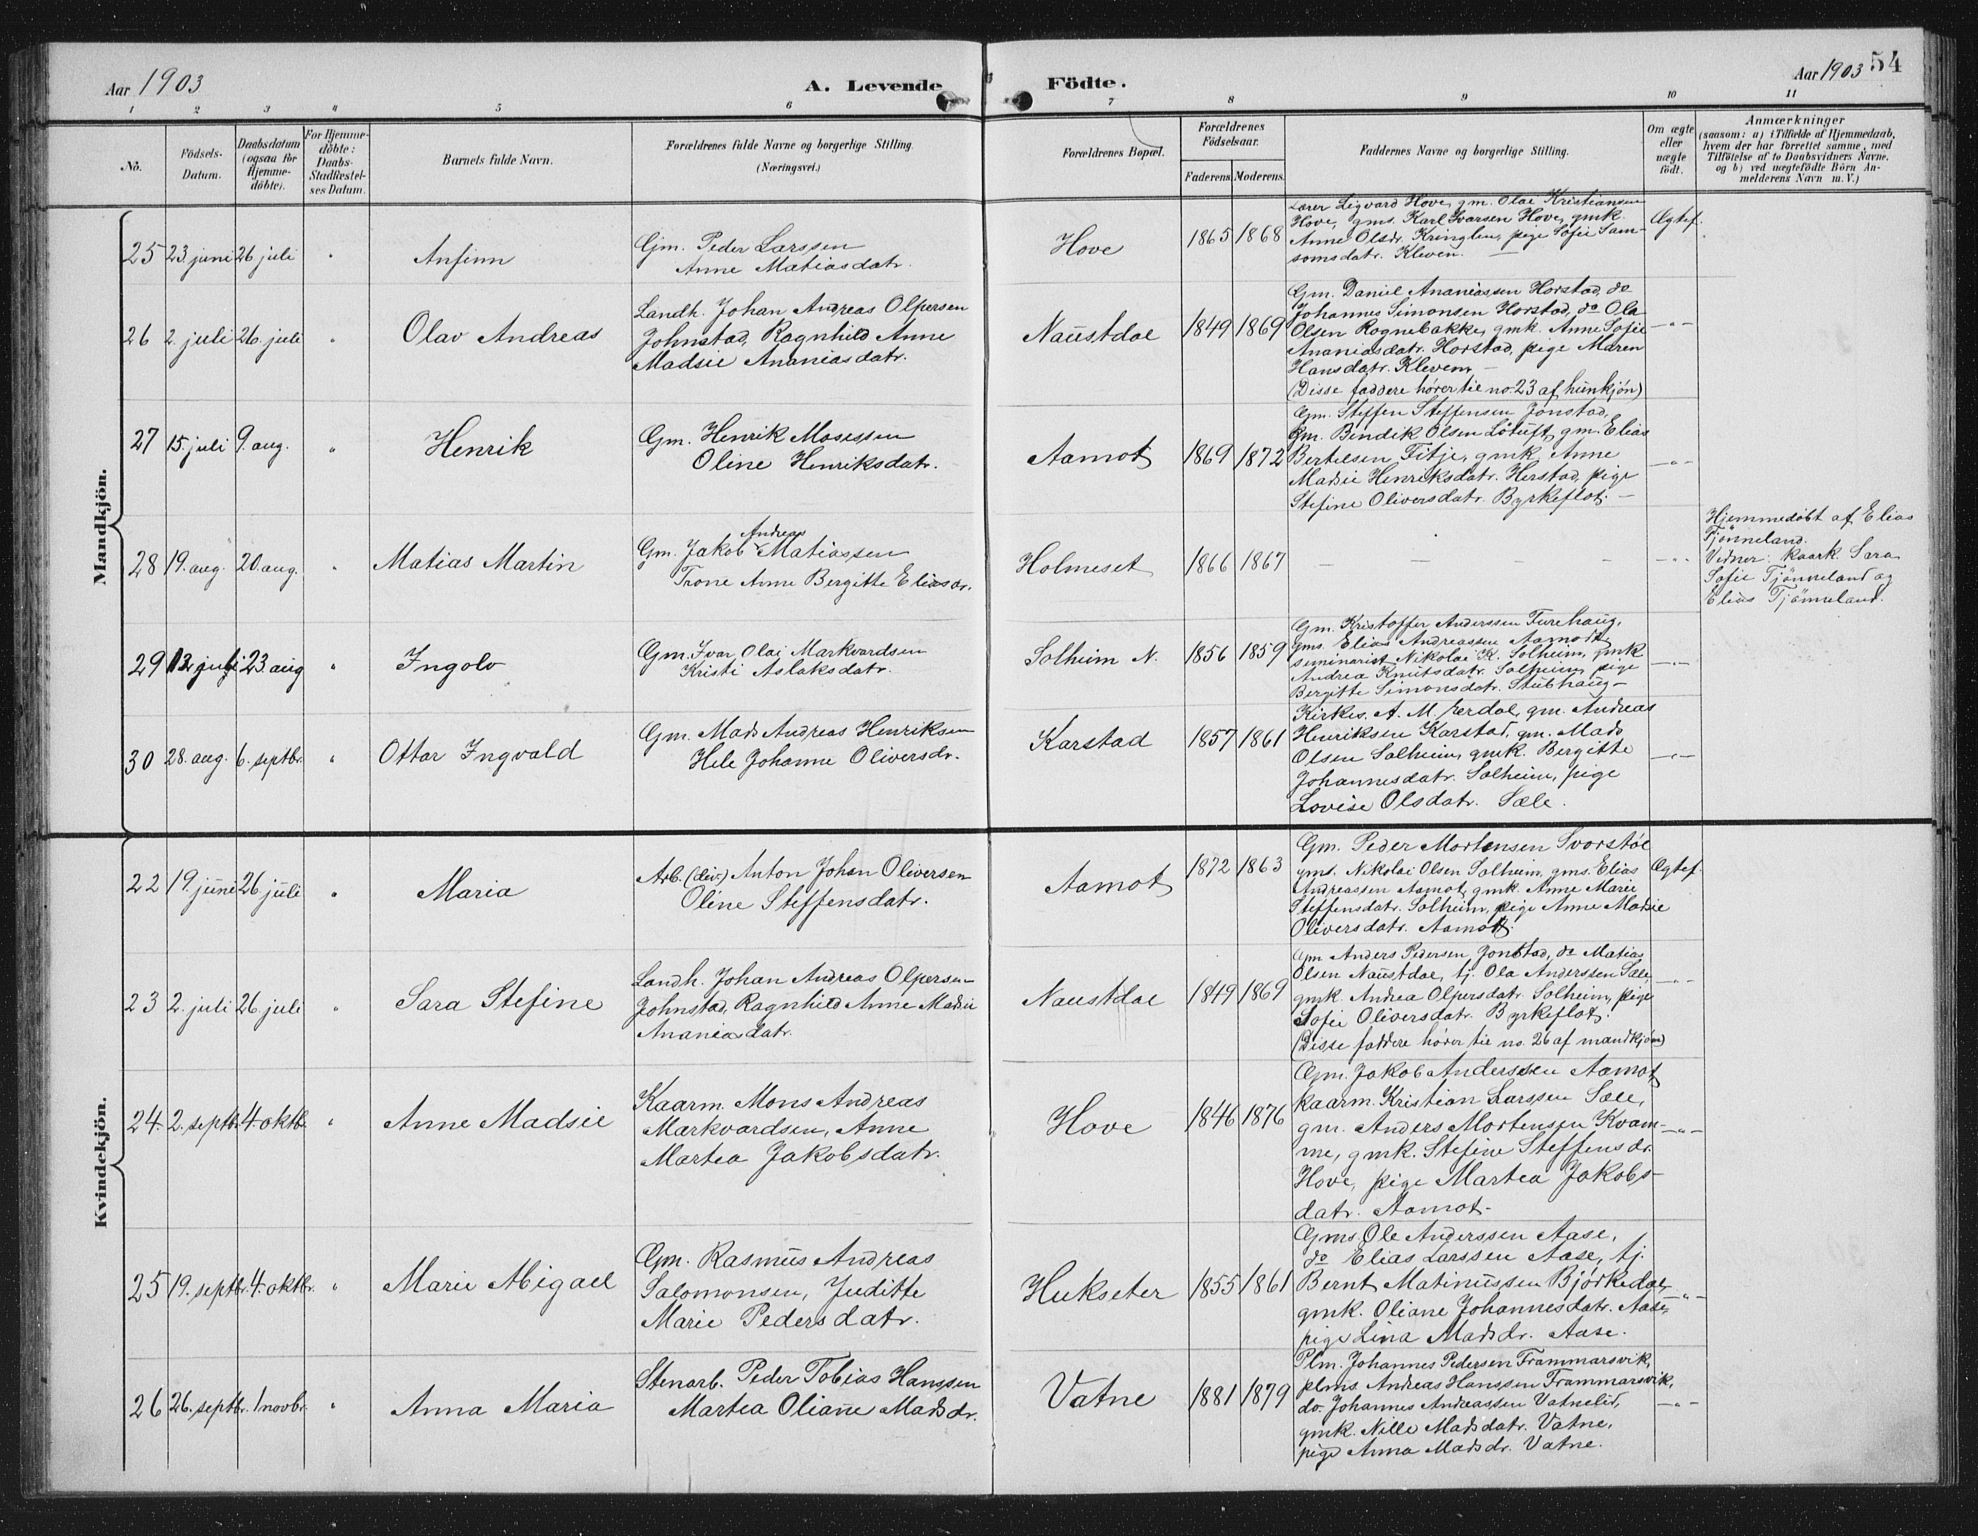 Aar 1903
A. Levende Födte.
Aar 1903 54
1 2 3 4 5 6 7 8 9 10 11
No.
Födsels-
Datum.
Daabsdatum
(ogsaa for
Hjemme-
döbte).
For Hjemme-
döbte:
Daabs-
Stadfæstel-
ses Datum.
Barnets fulde Navn.
Forældrenes fulde Navne og borgerlige Stilling.
(Næringsvei.)
Forældrenes Bopæl.
Forældrenes
Födselsaar.
Faderens. Moderens.
Faddernes Navne og borgerlige Stilling.
Om ægte
eller
uægte
födt.
Anmærkninger
(saasom: a) i Tilfælde af Hjemmedaab,
hvem der har forrettet samme, med
Tilföielse af to Daabsvidners Navne,
og b) ved uægtefödte Börn An-
melderens Navn m. V.)
Mandkjön.
25 23. juni 26 juli " Anfinn
Gm. Peder Larssen
Anne Matiasdatr.
Hove 1865 1868
Lærer Sigvard Hove, gm. Olai Kristiansen
Hove, gms. Karl Ivarsen Hove, gmk.
Anne Olsdr. Kringlen, pige Sofie Sam-
somsdatr. Kleven. —
Ægtef.
26 2. juli 26. juli " Olav Andreas
Landh. Johan Andreas Olpersen
Johnstad, Ragnhild Anne
Madsie Ananiasdatr.
Naustdal 1849 1869
Gm. Daniel Ananiassen Horstad, do
Johannes Simonsen Horstad, do Ola
Olsen Rognebakke, gmk. Anne Sofie
Ananiasdatr. Horstad, pige Maren
Hansdatr. Kleven. —
(Disse faddere hører til no. 23 af hunkjön)
—"—
27 15. juli 9. aug. " Henrik
Gm. Henrik Mosessen
Oline Henriksdatr.
Aamot 1869 1872
Gm. Steffen Steffensen Jonstad,
Gm. Bendik Olsen Løtuft, gm. Elias
Bertelsen Fitje, gmk. Anne
Madsie Henriksdatr. Herstad, pige
Stefine Oliversdatr. Byrkeflot. —
—"—
28 19. aug. 20. aug. " Matias Martin
Andreas
Gm. Jakob Matiassen
Trone Anne Bergitte Eliasdr.
Holmeset 1866 1867
— — — — —
—"—
Hjemmedøbt af Elias
Tjønneland.
Vidner: kaark. Sara
Sofie Tjønneland og
Elias Tjønneland.
29 12 juli 23 aug " Ingolv
Gm. Ivar Olai Markvardsen
Kristi Aslaksdatr.
Solheim N. 1856 1859
Gm. Kristoffer Anderssen Furehaug,
gms. Elias Andreassen Aamot,
seminarist Nikolai K. Solheim, gmk
Andrea Knutsdatr. Solheim, pige
Bergitte Simonsdatr. Stubhaug —
—"—
30 28. aug. 6. septbr. " Ottar Ingvald
Gm. Mads Andreas Henriksen
Hele Johanne Oliversdr.
Karstad 1857 1861
Kirkes. A. M. Erdal, gm. Andreas
Henriksen Karstad, gm. Mads
Olsen Solheim, gmk. Bergitte
Johannesdatr. Solheim, pige
Lovise Olsdatr. Sæle.
—"—
Kvindekjön.
22 19. juni 26 juli " Maria
Arb. (div.) Anton Johan Oliversen
Oline Steffensdatr.
Aamot 1872 1863
Gm. Peder Mortensen Svorstøl
gms. Nikolai Olsen Solheim, gms. Elias
Andreassen Aamot, gmk. Anne Marie
Steffensdatr. Solheim, pige Anne Madsie
Oliversdatr. Aamot.
Ægtef.
23 2. juli 26. juli " Sara Stefine
Landh. Johan Andreas Olpersen
Johnstad, Ragnhild Anne Madsie
Ananiasdatr.
Naustdal 1849 1869
Gm Anders Pedersen Jonstad, do Matias
Olsen Naustdal, tj. Ola Anderssen Sæle
gmk. Andrea Olpersdatr. Solheim, pige
Sofie Oliversdatr. Byrkeflot.
(Disse faddere hører til no. 26 af mandkjøn)
—"—
24. 2. septb. 4. oktb. " Anne Madsie
Kaarm. Mons Andreas
Markvardsen, Anne
Martea Jakobsdatr.
Hove 1846 1876
Gm. Jakob Anderssen Aamot
kaarm. Kristian Larssen Sæle,
gm. Anders Mortensen Kvam-
me, gmk. Stefine Steffensdr.
Hove, pige Martea Jakobs-
datr. Aamot. —
—"—
25 19. septbr. 4. oktbr. " Marie Abigael
Gm. Rasmus Andreas
Salomonsen, Juditte
Marie Pedersdatr.
Hukseter 1855 1861
Gms. Ole Anderssen Aase,
do Elias Larssen Aase, tj.
Bernt Matinussen Bjørkedal,
gmk. Oliane Johannesdatr. Aase,
pige Lina Madsdr. Aase.
—"—
26 26. septbr. 1 novbr. " Anna Maria
Stenarb. Peder Tobias Hanssen
Martea Oliane Madsdr.
Vatne 1881 1879
Plm. Johannes Pedersen Frammarsvik,
plms. Andreas Hanssen Frammarsvik,
do. Johannes Andreassen Vatnelid,
gmk. Nille Madsdatr. Vatne,
pige Anna Madsdr. Vatne.
—"—